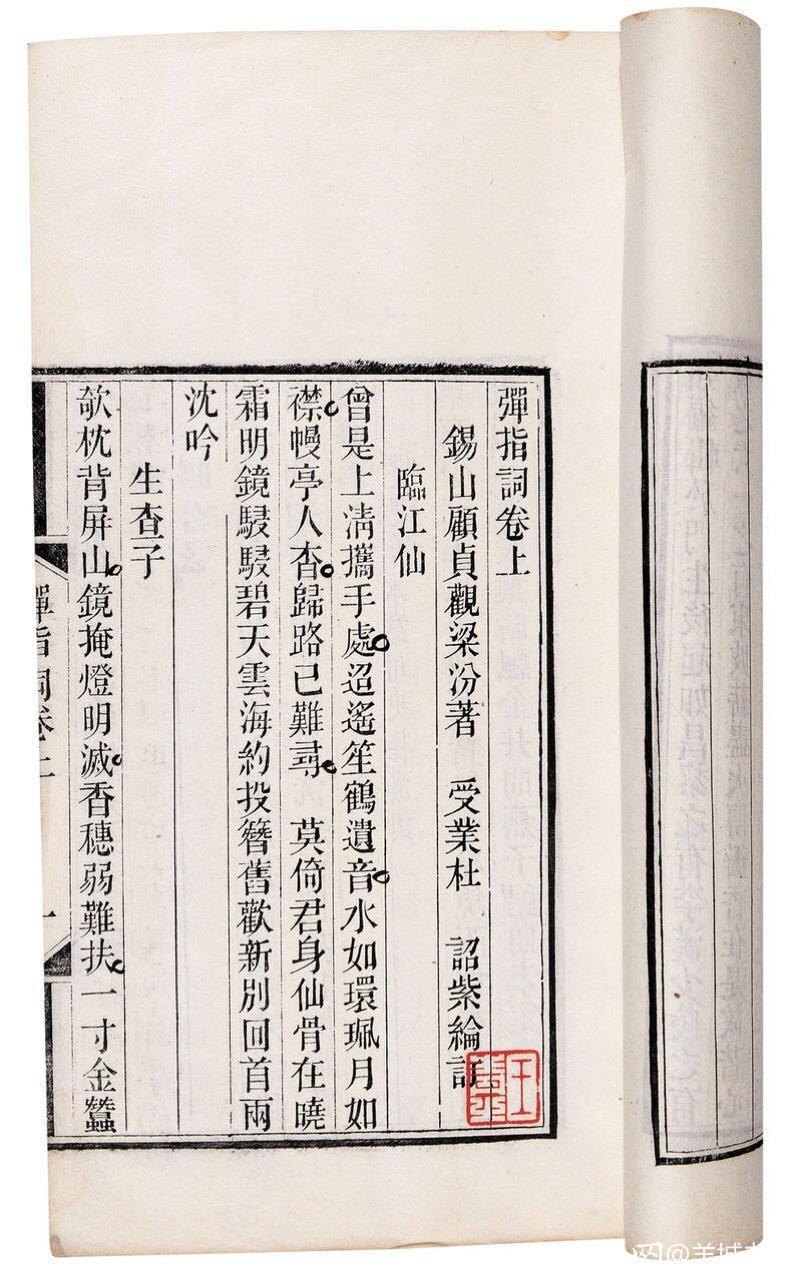 彈指詞卷上
錫山顧貞觀梁汾著　受業杜　詔紫綸訂
臨江仙
曾是上淸攜手處迢遙笙鶴遺音水如環珮月如
襟幔亭人杳歸路已難尋　莫倚君身仙骨在曉
霜明鏡駸駸碧天雲海約投簪舊歡新別回首兩
沈吟
生查子
欹枕背屏山鏡掩燈明滅香穗弱難扶一寸金蠶
彈指詞卷上
一
王
@羊城